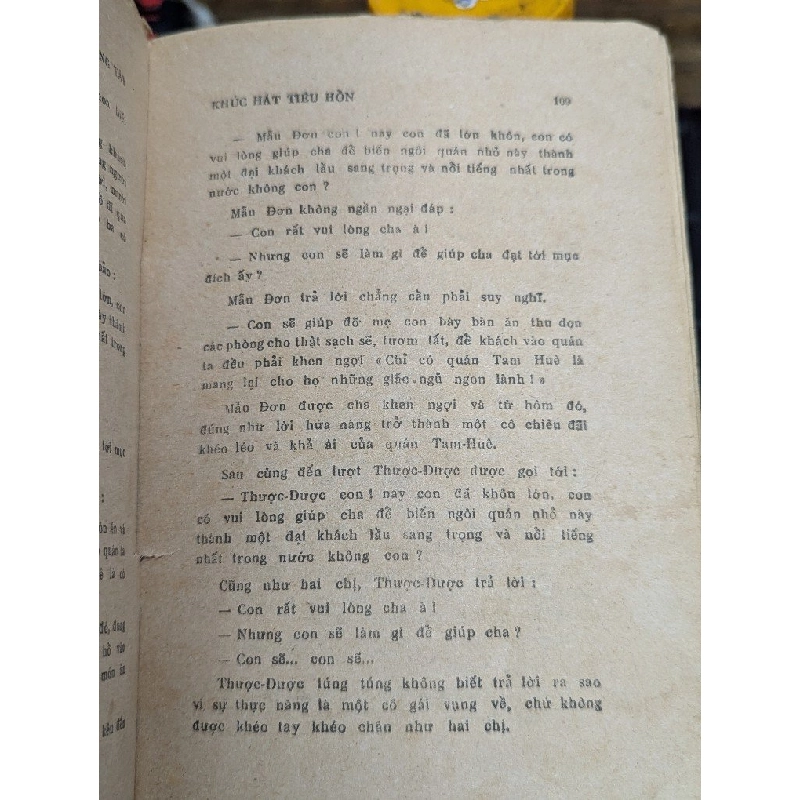 KHÚC HÁT TIÊU HỒN 109
— Mẫu Đơn con ! nay con đã lớn khôn, con có
vui lòng giúp cha để biến ngôi quán nhỏ này thành
một đại khách lầu sang trọng và nổi tiếng nhất trong
nước không con ?
Mẫu Đơn không ngần ngại đáp :
— Con rất vui lòng cha à !
— Nhưng con sẽ làm gì để giúp cha đạt tới mục
đích ấy ?
Mẫu Đơn trả lời chẳng cần phải suy nghĩ.
— Con sẽ giúp đỡ mẹ con bày bàn ăn thu dọn
các phòng cho thật sạch sẽ, tươm tất, để khách vào quán
ta đều phải khen ngợi « Chỉ có quán Tam Huê là
mang lại cho họ những giấc ngủ ngon lành ! »
Mẫu Đơn được cha khen ngợi và từ hôm đó,
đúng như lời hứa nàng trở thành một cô chiêu đãi
khéo léo và khả ái của quán Tam-Huê.
Sau cùng đến lượt Thược-Dược được gọi tới :
— Thược-Dược con ! nay con đã khôn lớn, con
có vui lòng giúp cha để biến ngôi quán nhỏ này
thành một đại khách lầu sang trọng và nổi tiếng
nhất trong nước không con ?
Cũng như hai chị, Thược-Dược trả lời :
— Con rất vui lòng cha à !
— Nhưng con sẽ làm gì để giúp cha ?
— Con sẽ... con sẽ...
Thược-Dược lúng túng không biết trả lời ra sao
vì sự thực nàng là một cô gái vụng về, chứ không
được khéo tay khéo chân như hai chị.